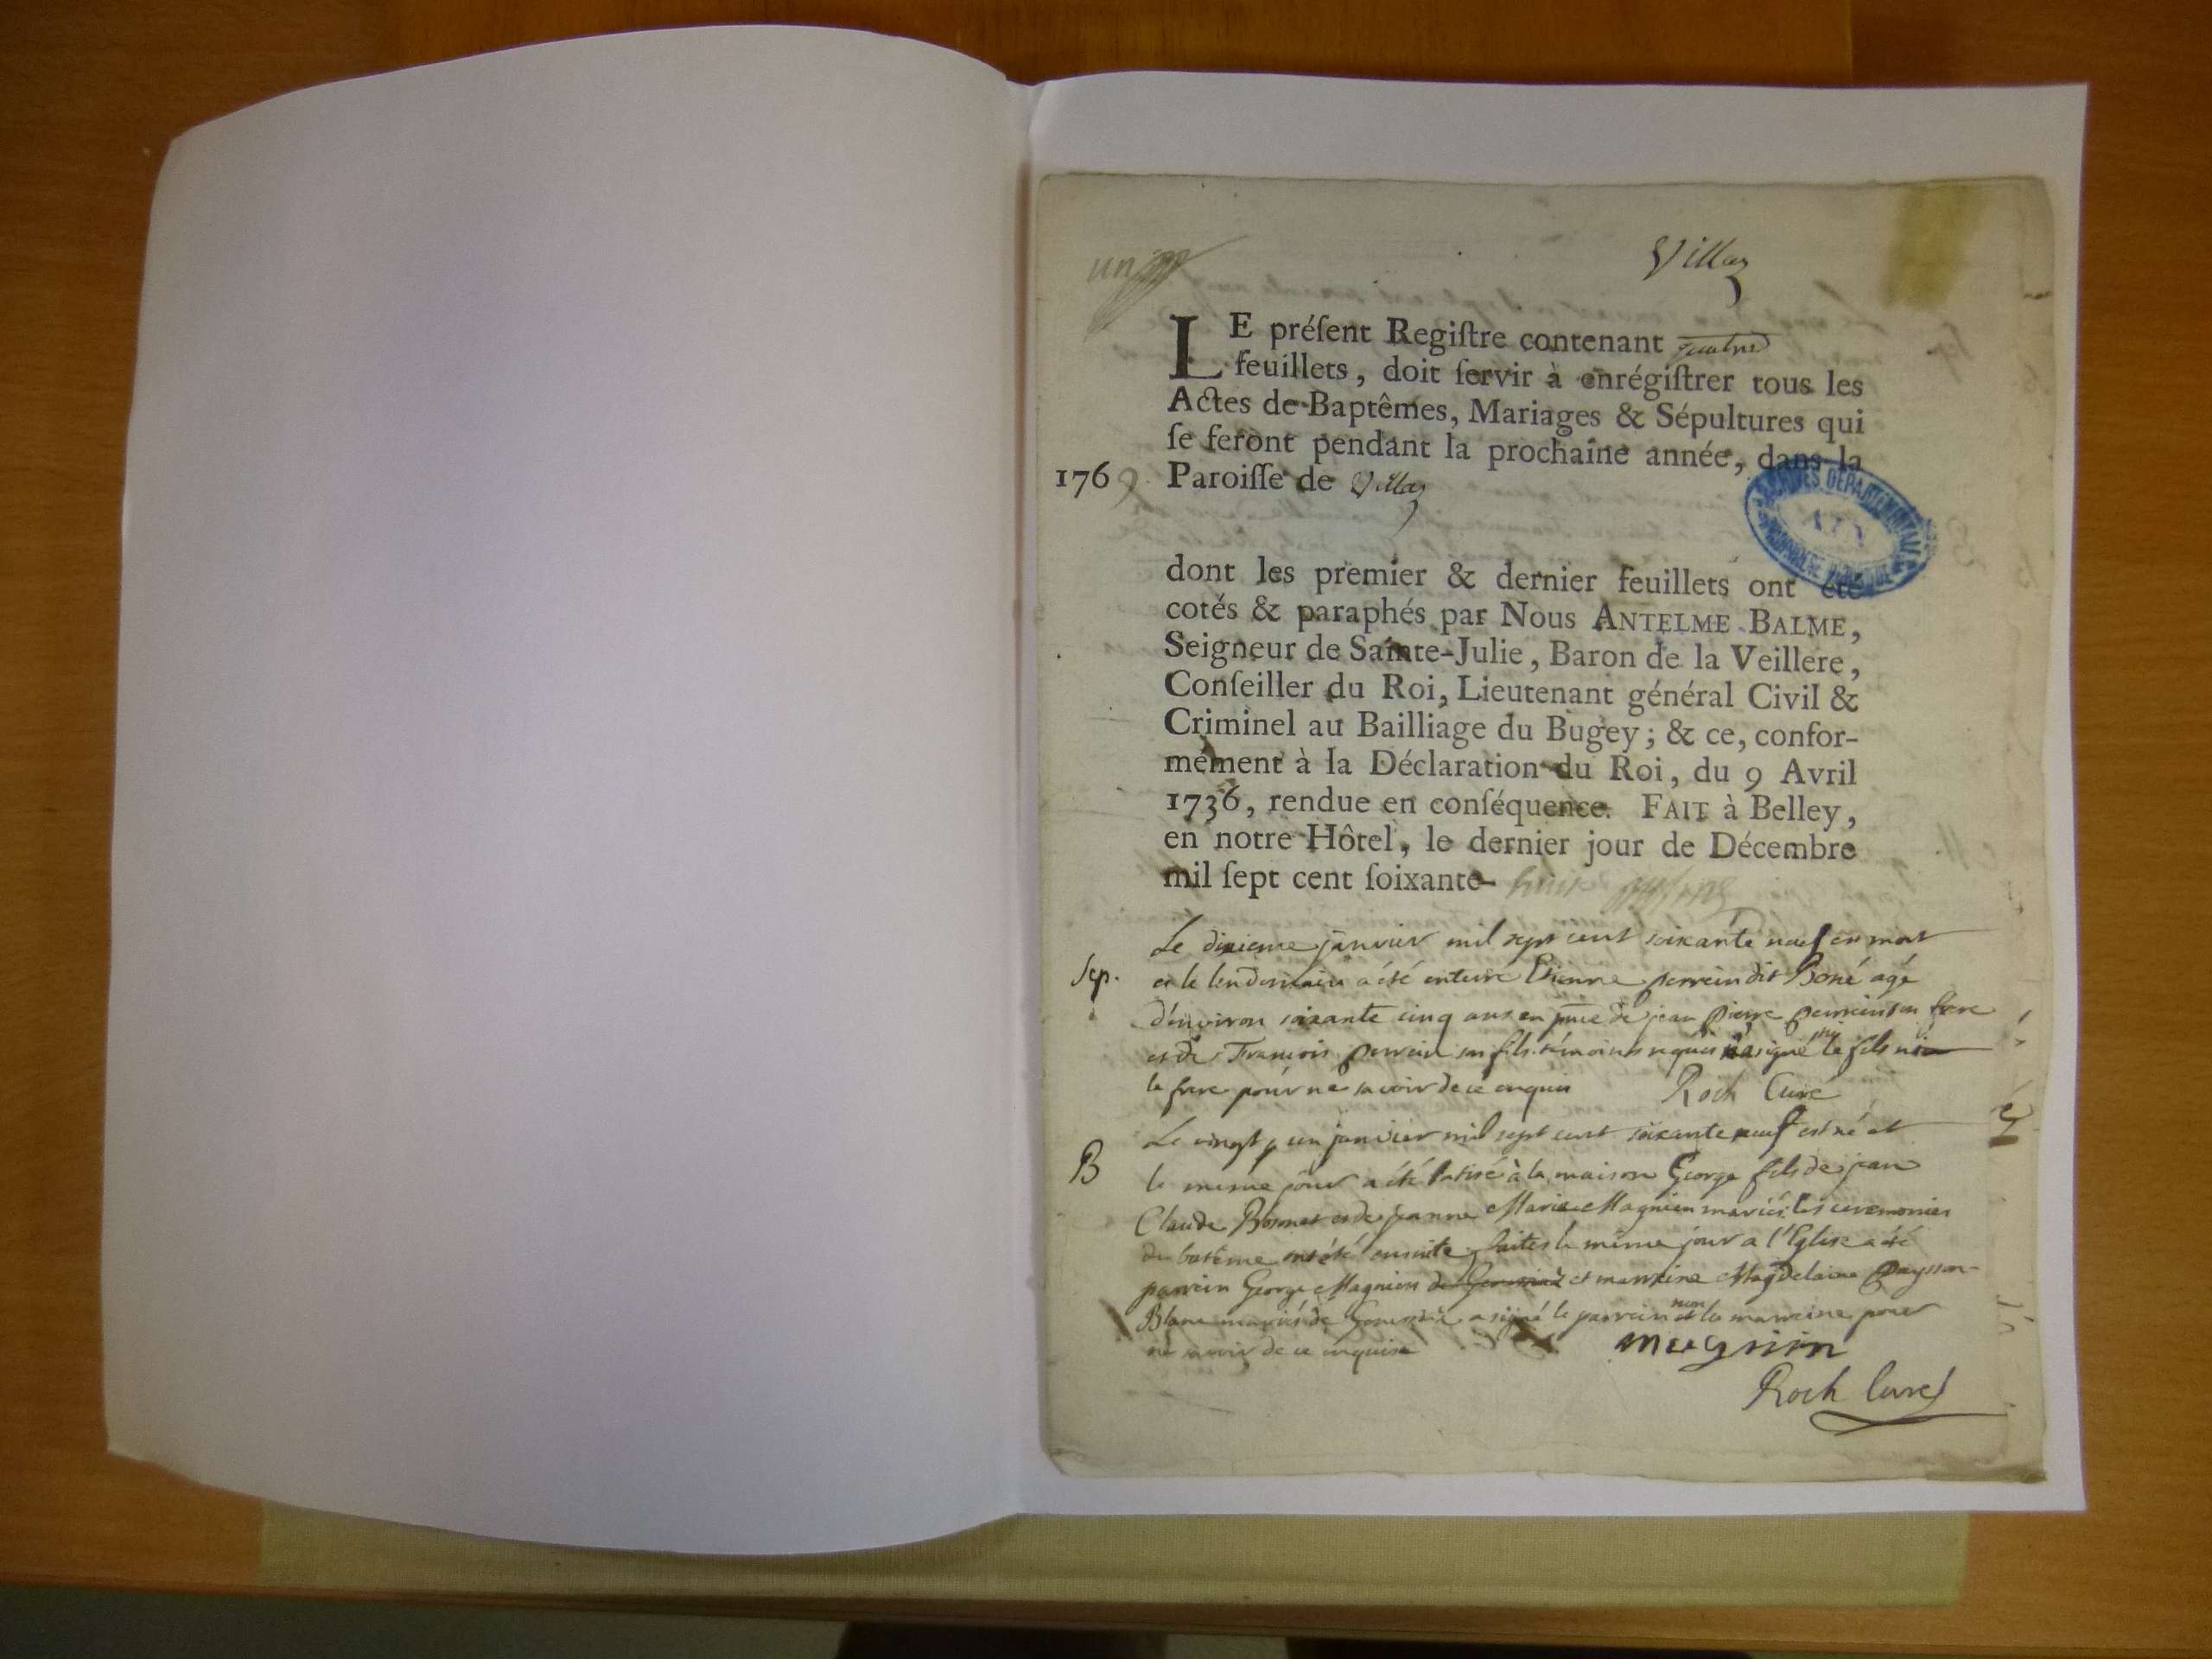 un
Villaz
LE préſent Regiſtre contenant quatre
feuillets, doit ſervir à enrégiſtrer tous les
Actes de Baptêmes, Mariages & Sépultures qui
ſe feront pendant la prochaine année, dans la
1769 Paroiſſe de Villaz
ARCHIVES DÉPARTEMENTALES
dont les premier & dernier feuillets ont été
cotés & paraphés par Nous ANTELME BALME,
Seigneur de Sainte-Julie, Baron de la Veillere,
Conſeiller du Roi, Lieutenant général Civil &
Criminel au Bailliage du Bugey; & ce, confor-
mément à la Déclaration du Roi, du 9 Avril
1736, rendue en conſéquence. FAIT à Belley,
en notre Hôtel, le dernier jour de Décembre
mil ſept cent ſoixante- huit
Le dixieme janvier mil sept cent soixante neuf en mort
Sep. et le lendemain a été enterré Etienne perrein dit Boné agé
d'environ soixante cinq ans en pnce de jean pierre perrein son frere
et de François perrein son fils témoins requis a signé le fils
le frere pour ne savoir de ce enquis Roch Curé
Le vingt un janvier mil sept cent soixante neuf est né et
B le meme jour a été batisé à la maison George fils de jean
Claude Bonnet et de jeanne Marie Magnien mariés; les ceremonies
du batême ont été ensuite faites le même jour a l'Eglise a été
parrein George Magnien et marreine Magdelaine
Blanc mariés de a signé le parrein non la marreine pour
ne savoir de ce enquise magnin
Roch Curé